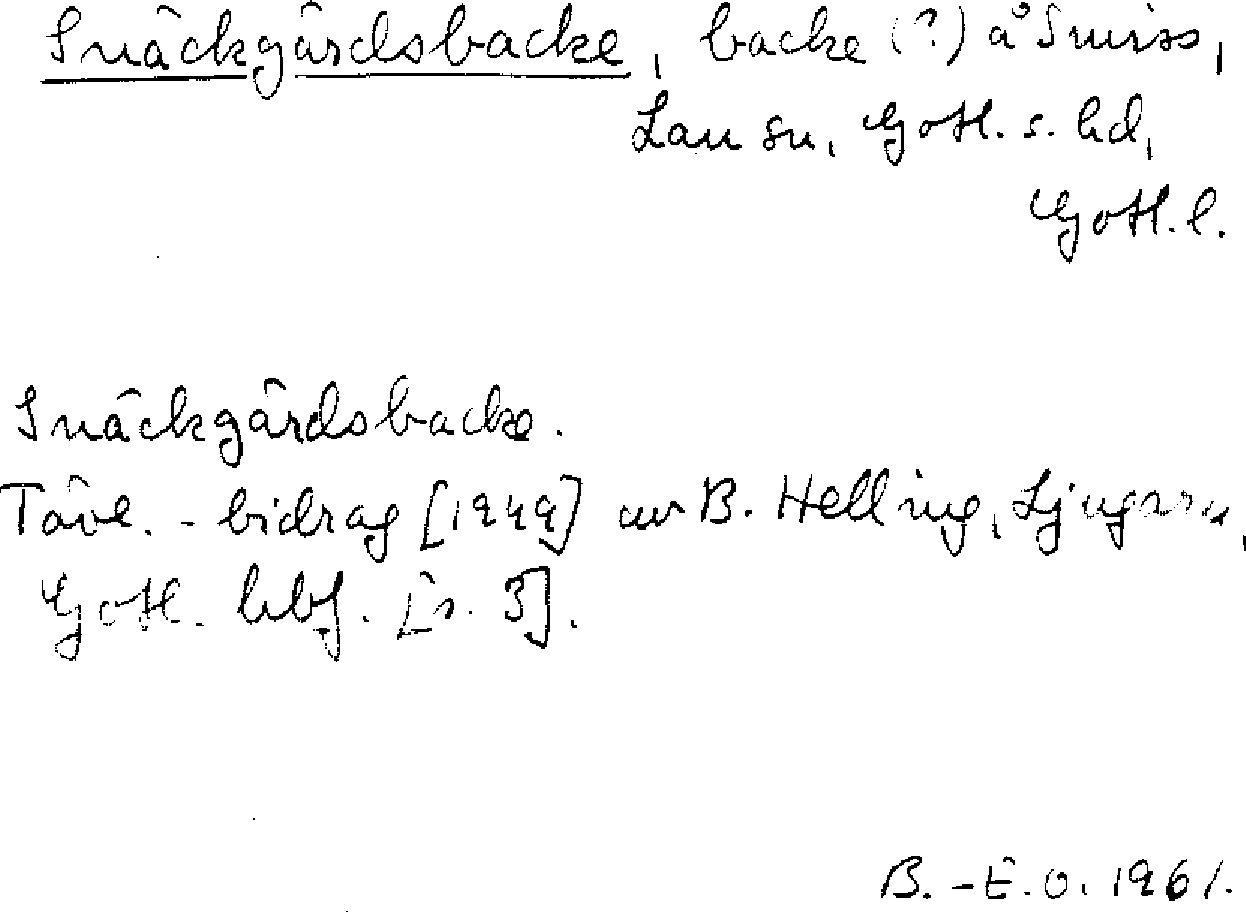 Snäckgärdsbacke, backe (?) å Smiss,
Lau sn, Gotl. s. hd,
Gotl. l.
Snäckgärdsbacke.
Tävl.-bidrag [1949] av B. Helling, Ljugarn,
Gotl. hbf. [s. 3].
B.-E.O. 1961.